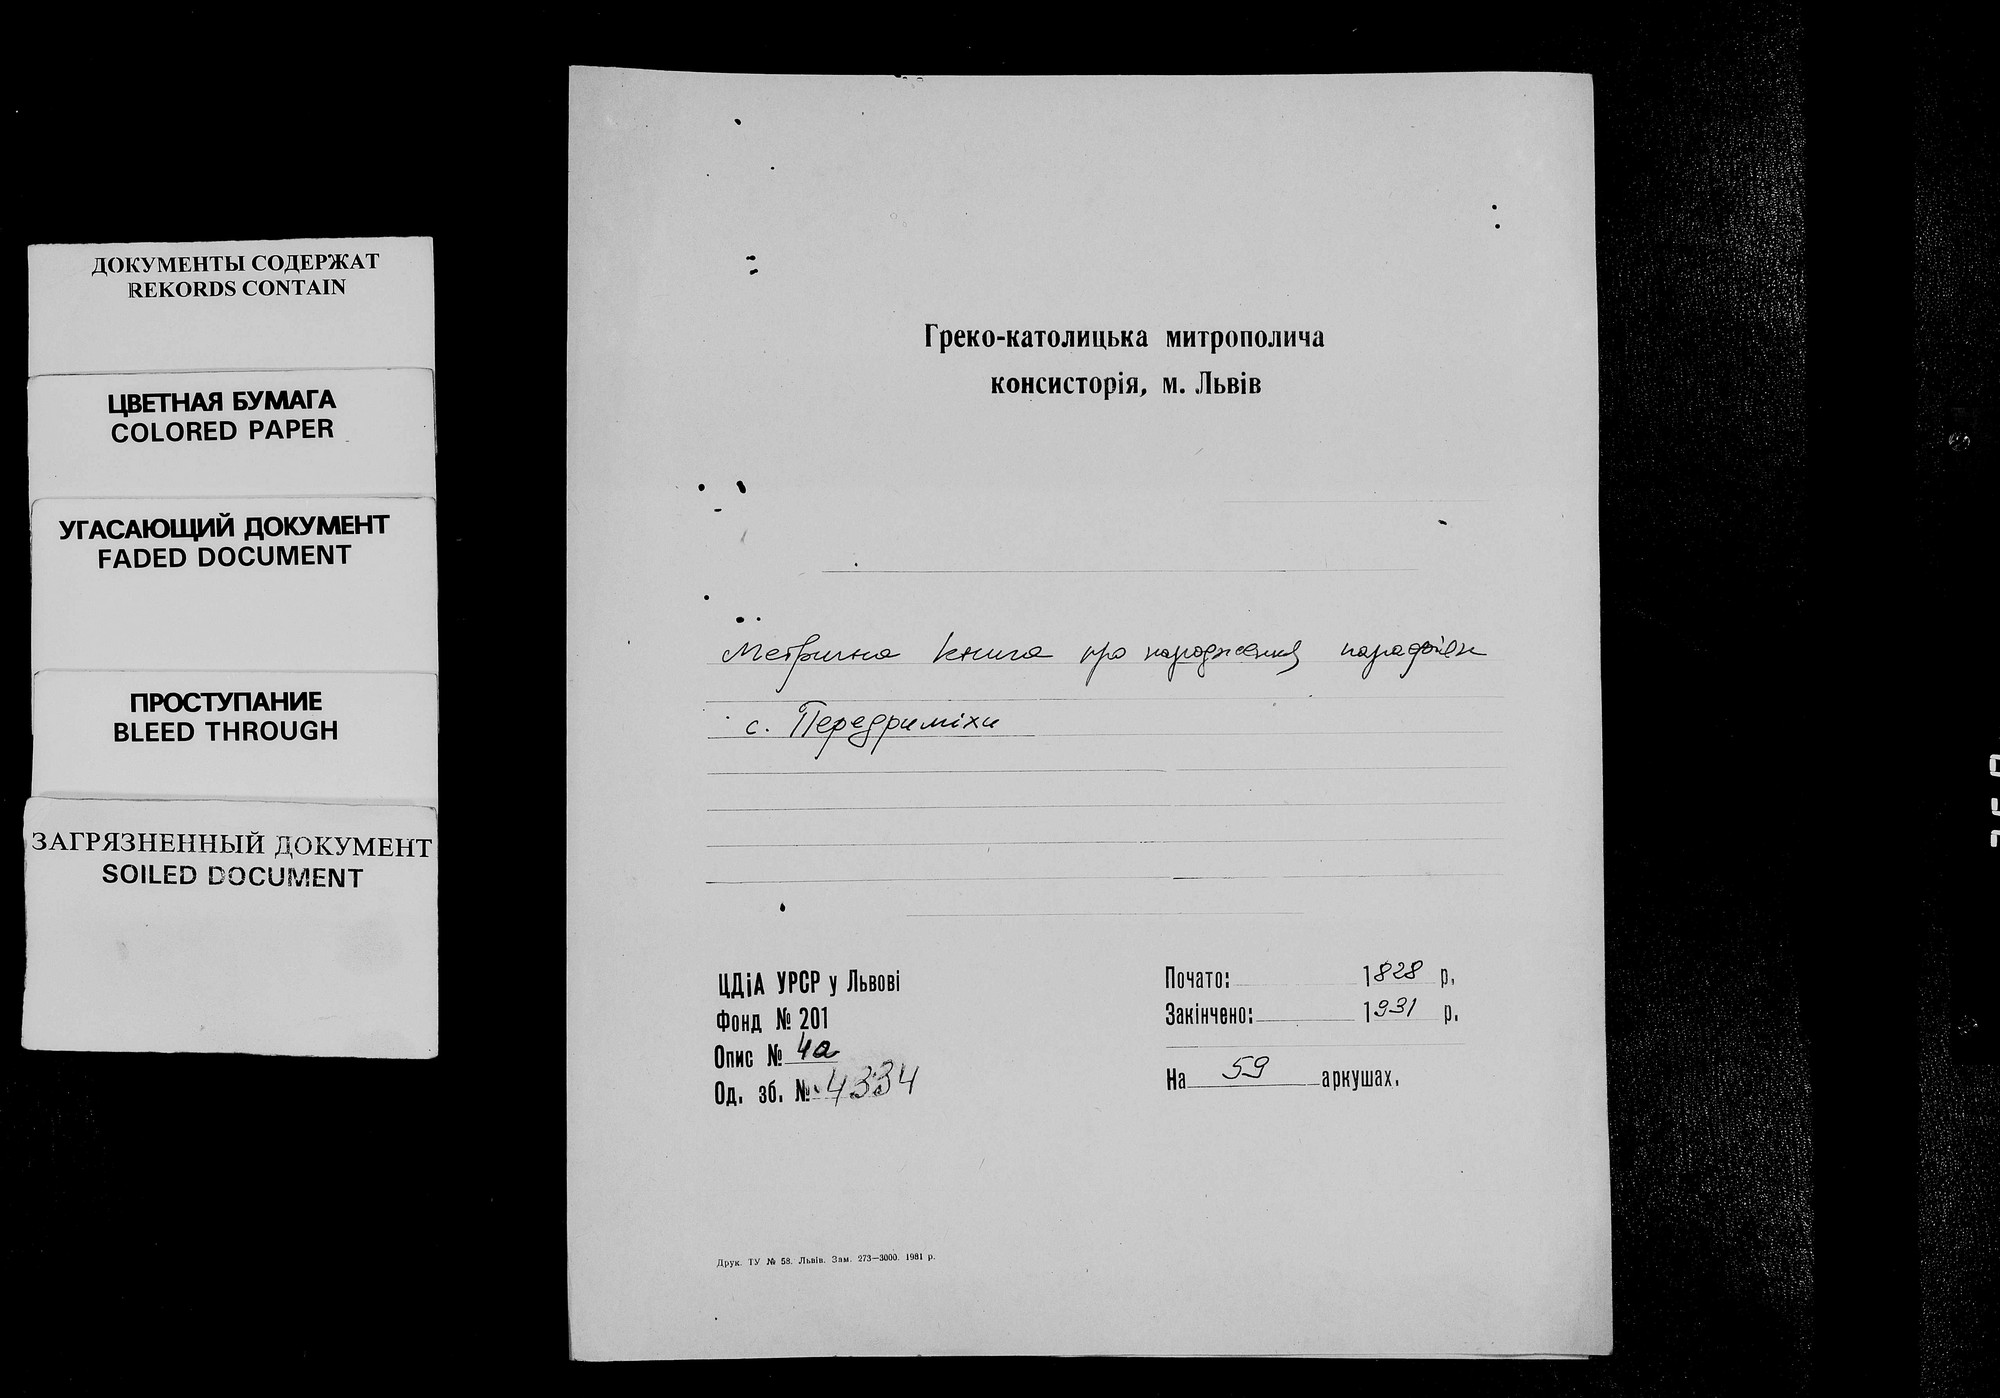 ДОКУМЕНТЫ СОДЕРЖАТ
REKORDS CONTAIN
ЦВЕТНАЯ БУМАГА
COLORED PAPER
УГАСАЮЩИЙ ДОКУМЕНТ
FADED DOCUMENT
ПРОСТУПАНИЕ
BLEED THROUGH
ЗАГРЯЗНЕННЫЙ ДОКУМЕНТ
SOILED DOCUMENT
Греко-католицька митрополича
консисторія, м. Львів
Метрична книга про народження парафіян
с. Передриміхи
ЦДіА УРСР у Львові
Фонд № 201
Опис № 4а
Од. зб. № 4334
Почато: 1828 р.
Закінчено: 1931 р.
На 59 аркушах.
Друк. ТУ № 58. Львів. Зам. 273—3000. 1981 р.